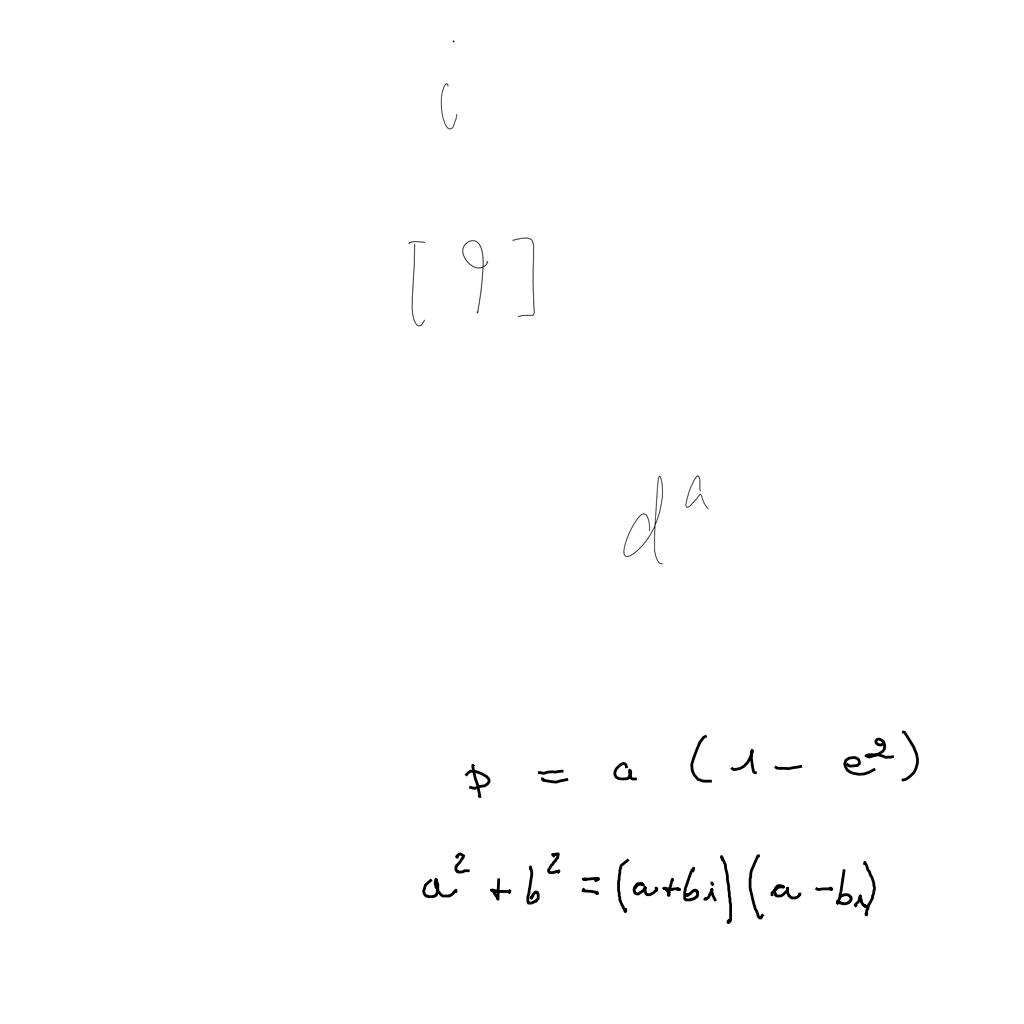 i
[9]
d^a
p = a (1 - e^2)
a^2 + b^2 = (a+bi)(a-bi)